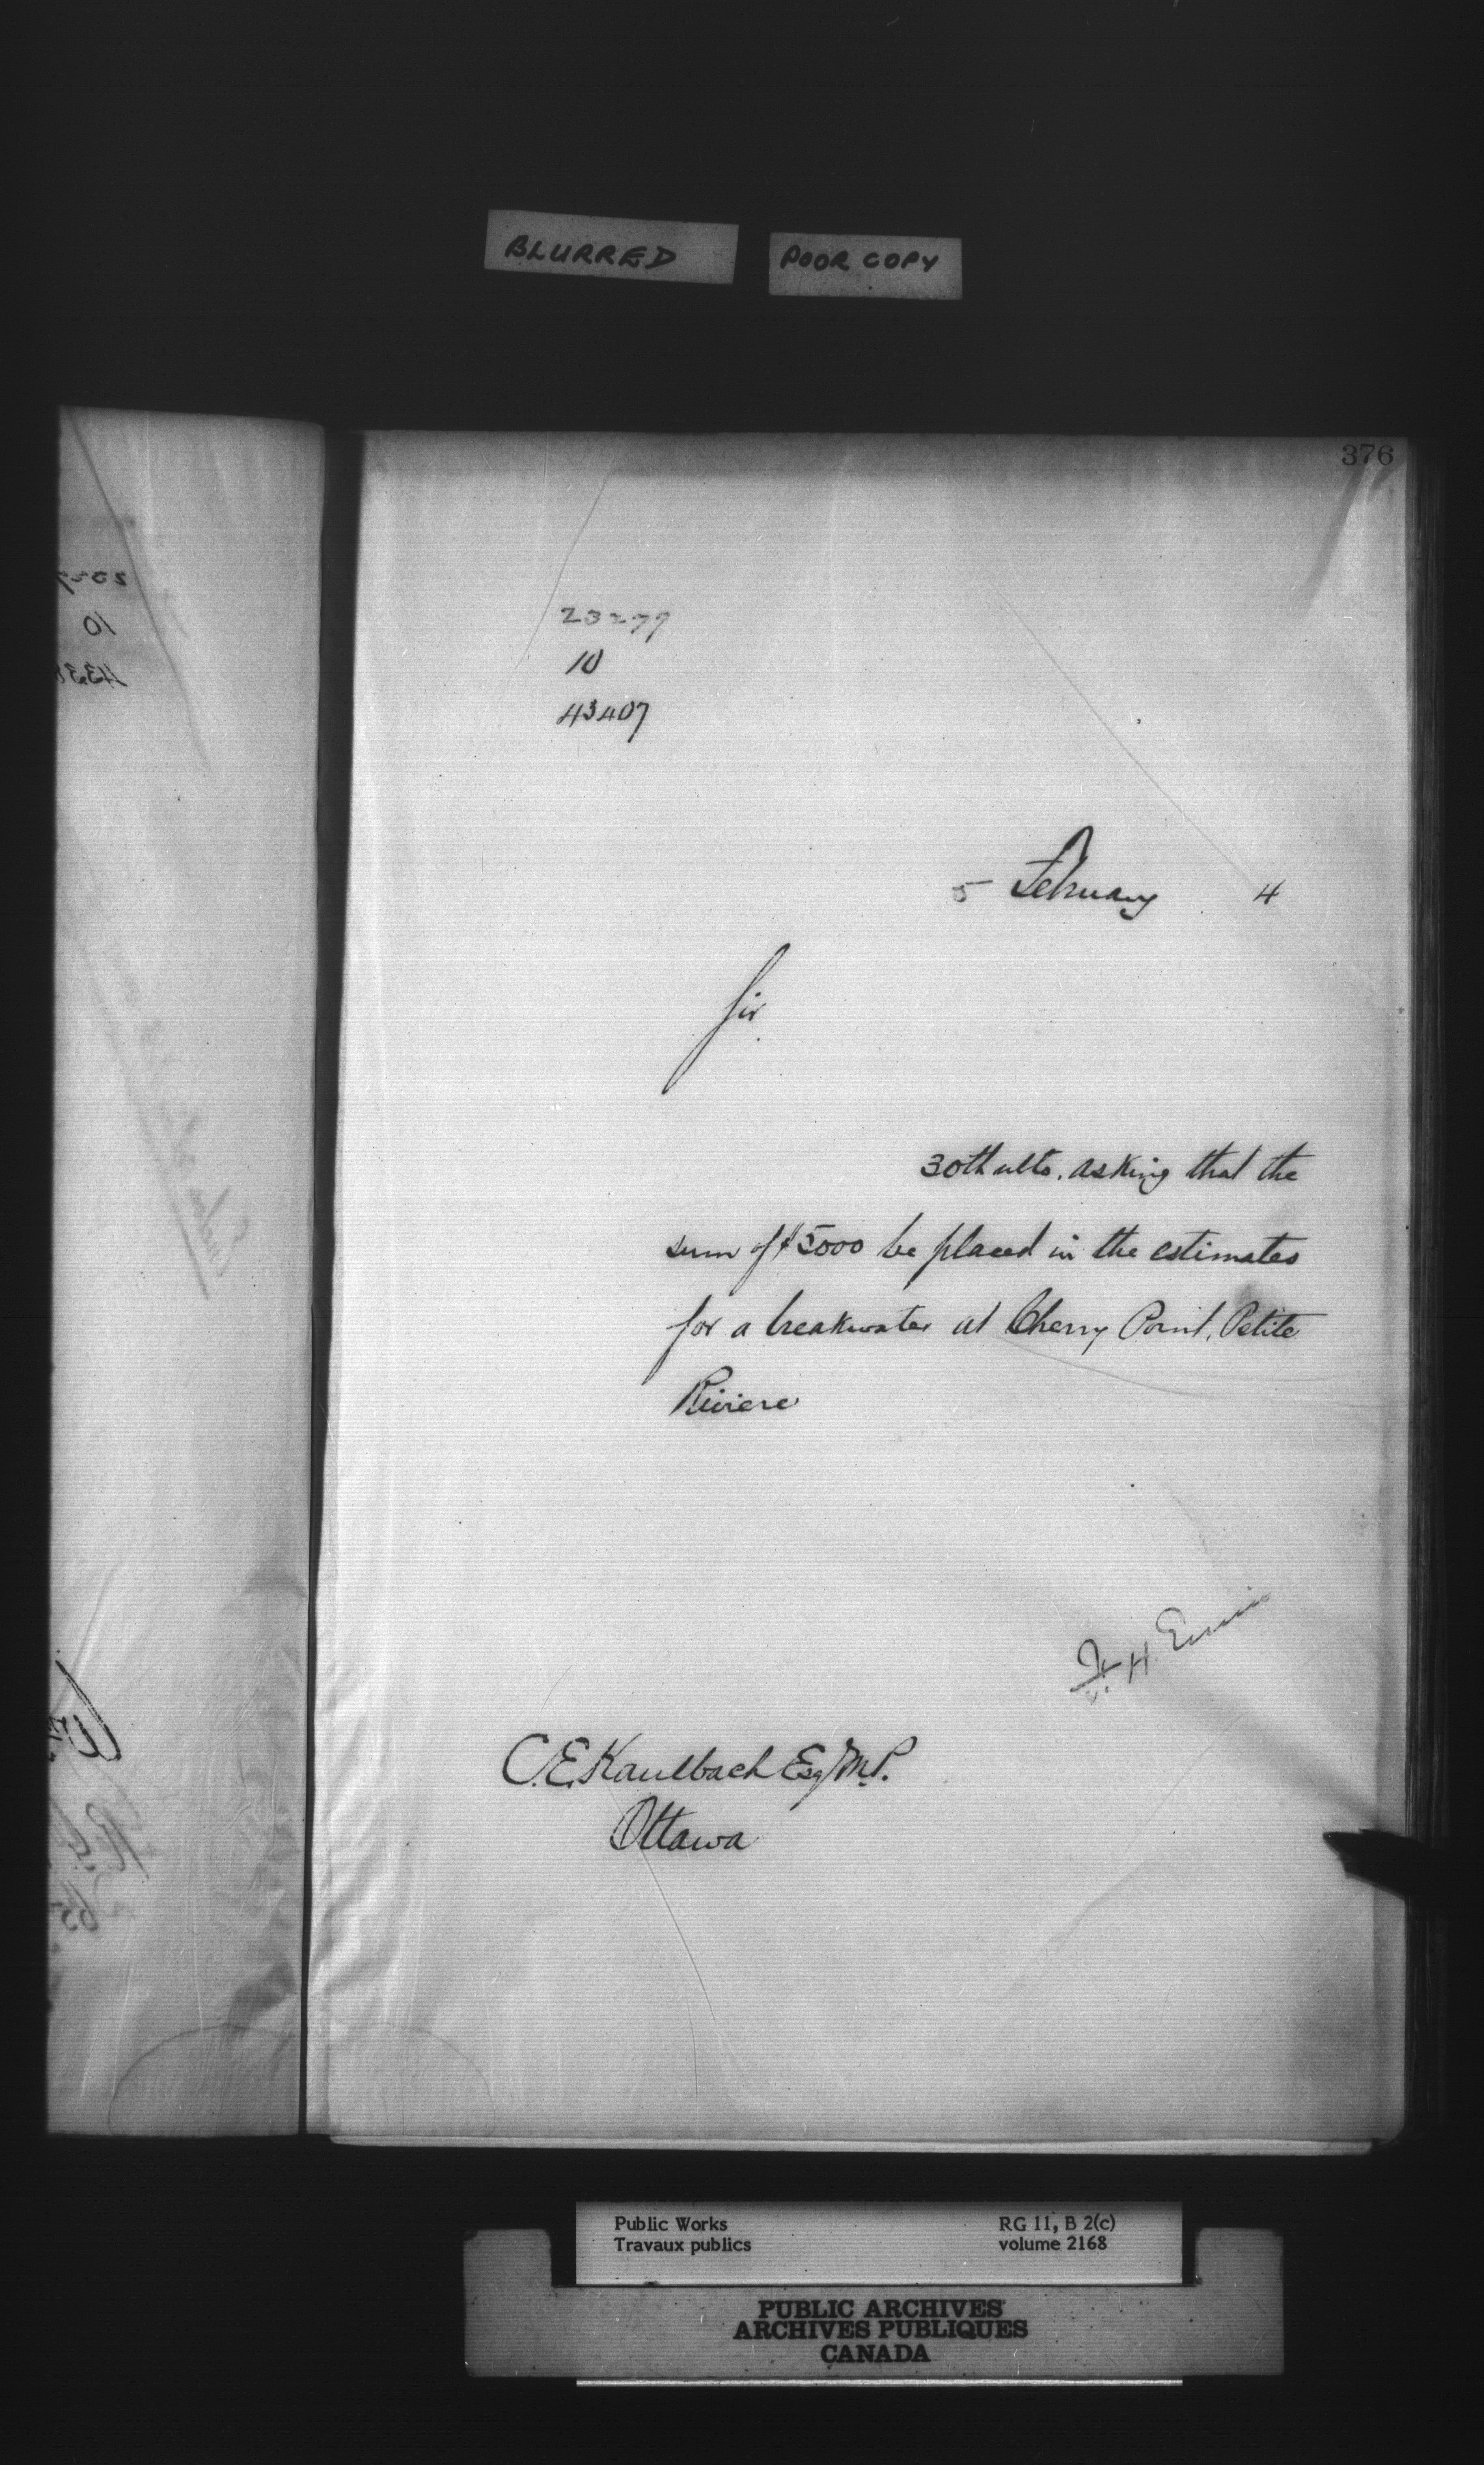 BLURRED POOR COPY
376
23277
10
43407
5 February 4
Sir
30th ulto. asking that the
sum of $5000 be placed in the estimates
for a breakwater at Cherry Point, Petite
Riviere
F. H. Ennis
C. E. Kaulbach Esq M.P.
Ottawa
Public Works RG 11, B 2(c)
Travaux publics volume 2168
PUBLIC ARCHIVES
ARCHIVES PUBLIQUES
CANADA